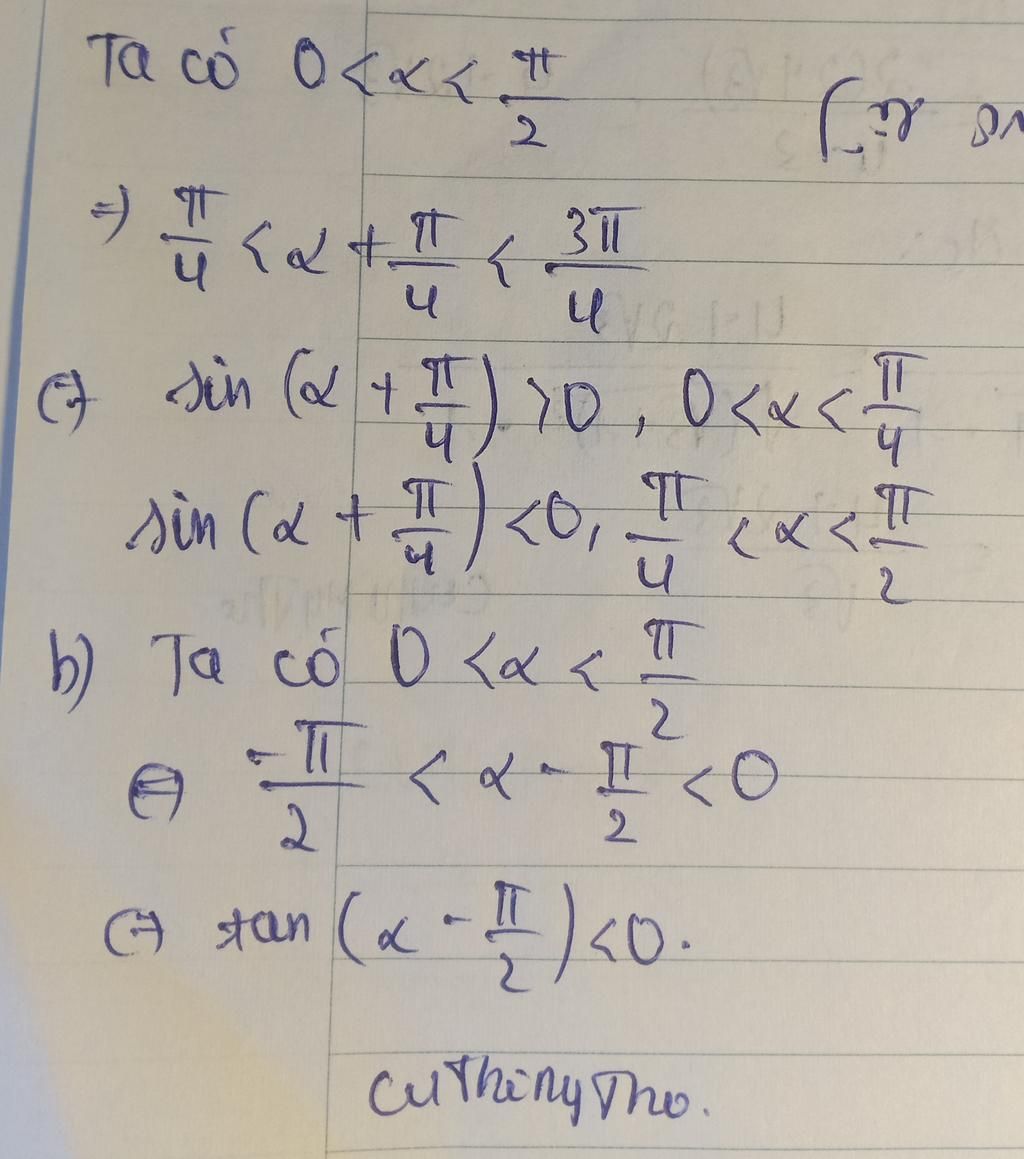 Ta có 0 < α < π/2
=> π/4 < α + π/4 < 3π/4
(=) sin (α + π/4) > 0, 0 < α < π/4
sin (α + π/4) < 0, π/4 < α < π/2
b) Ta có 0 < α < π/2
(=) -π/2 < α - π/2 < 0
(=) tan (α - π/2) < 0.